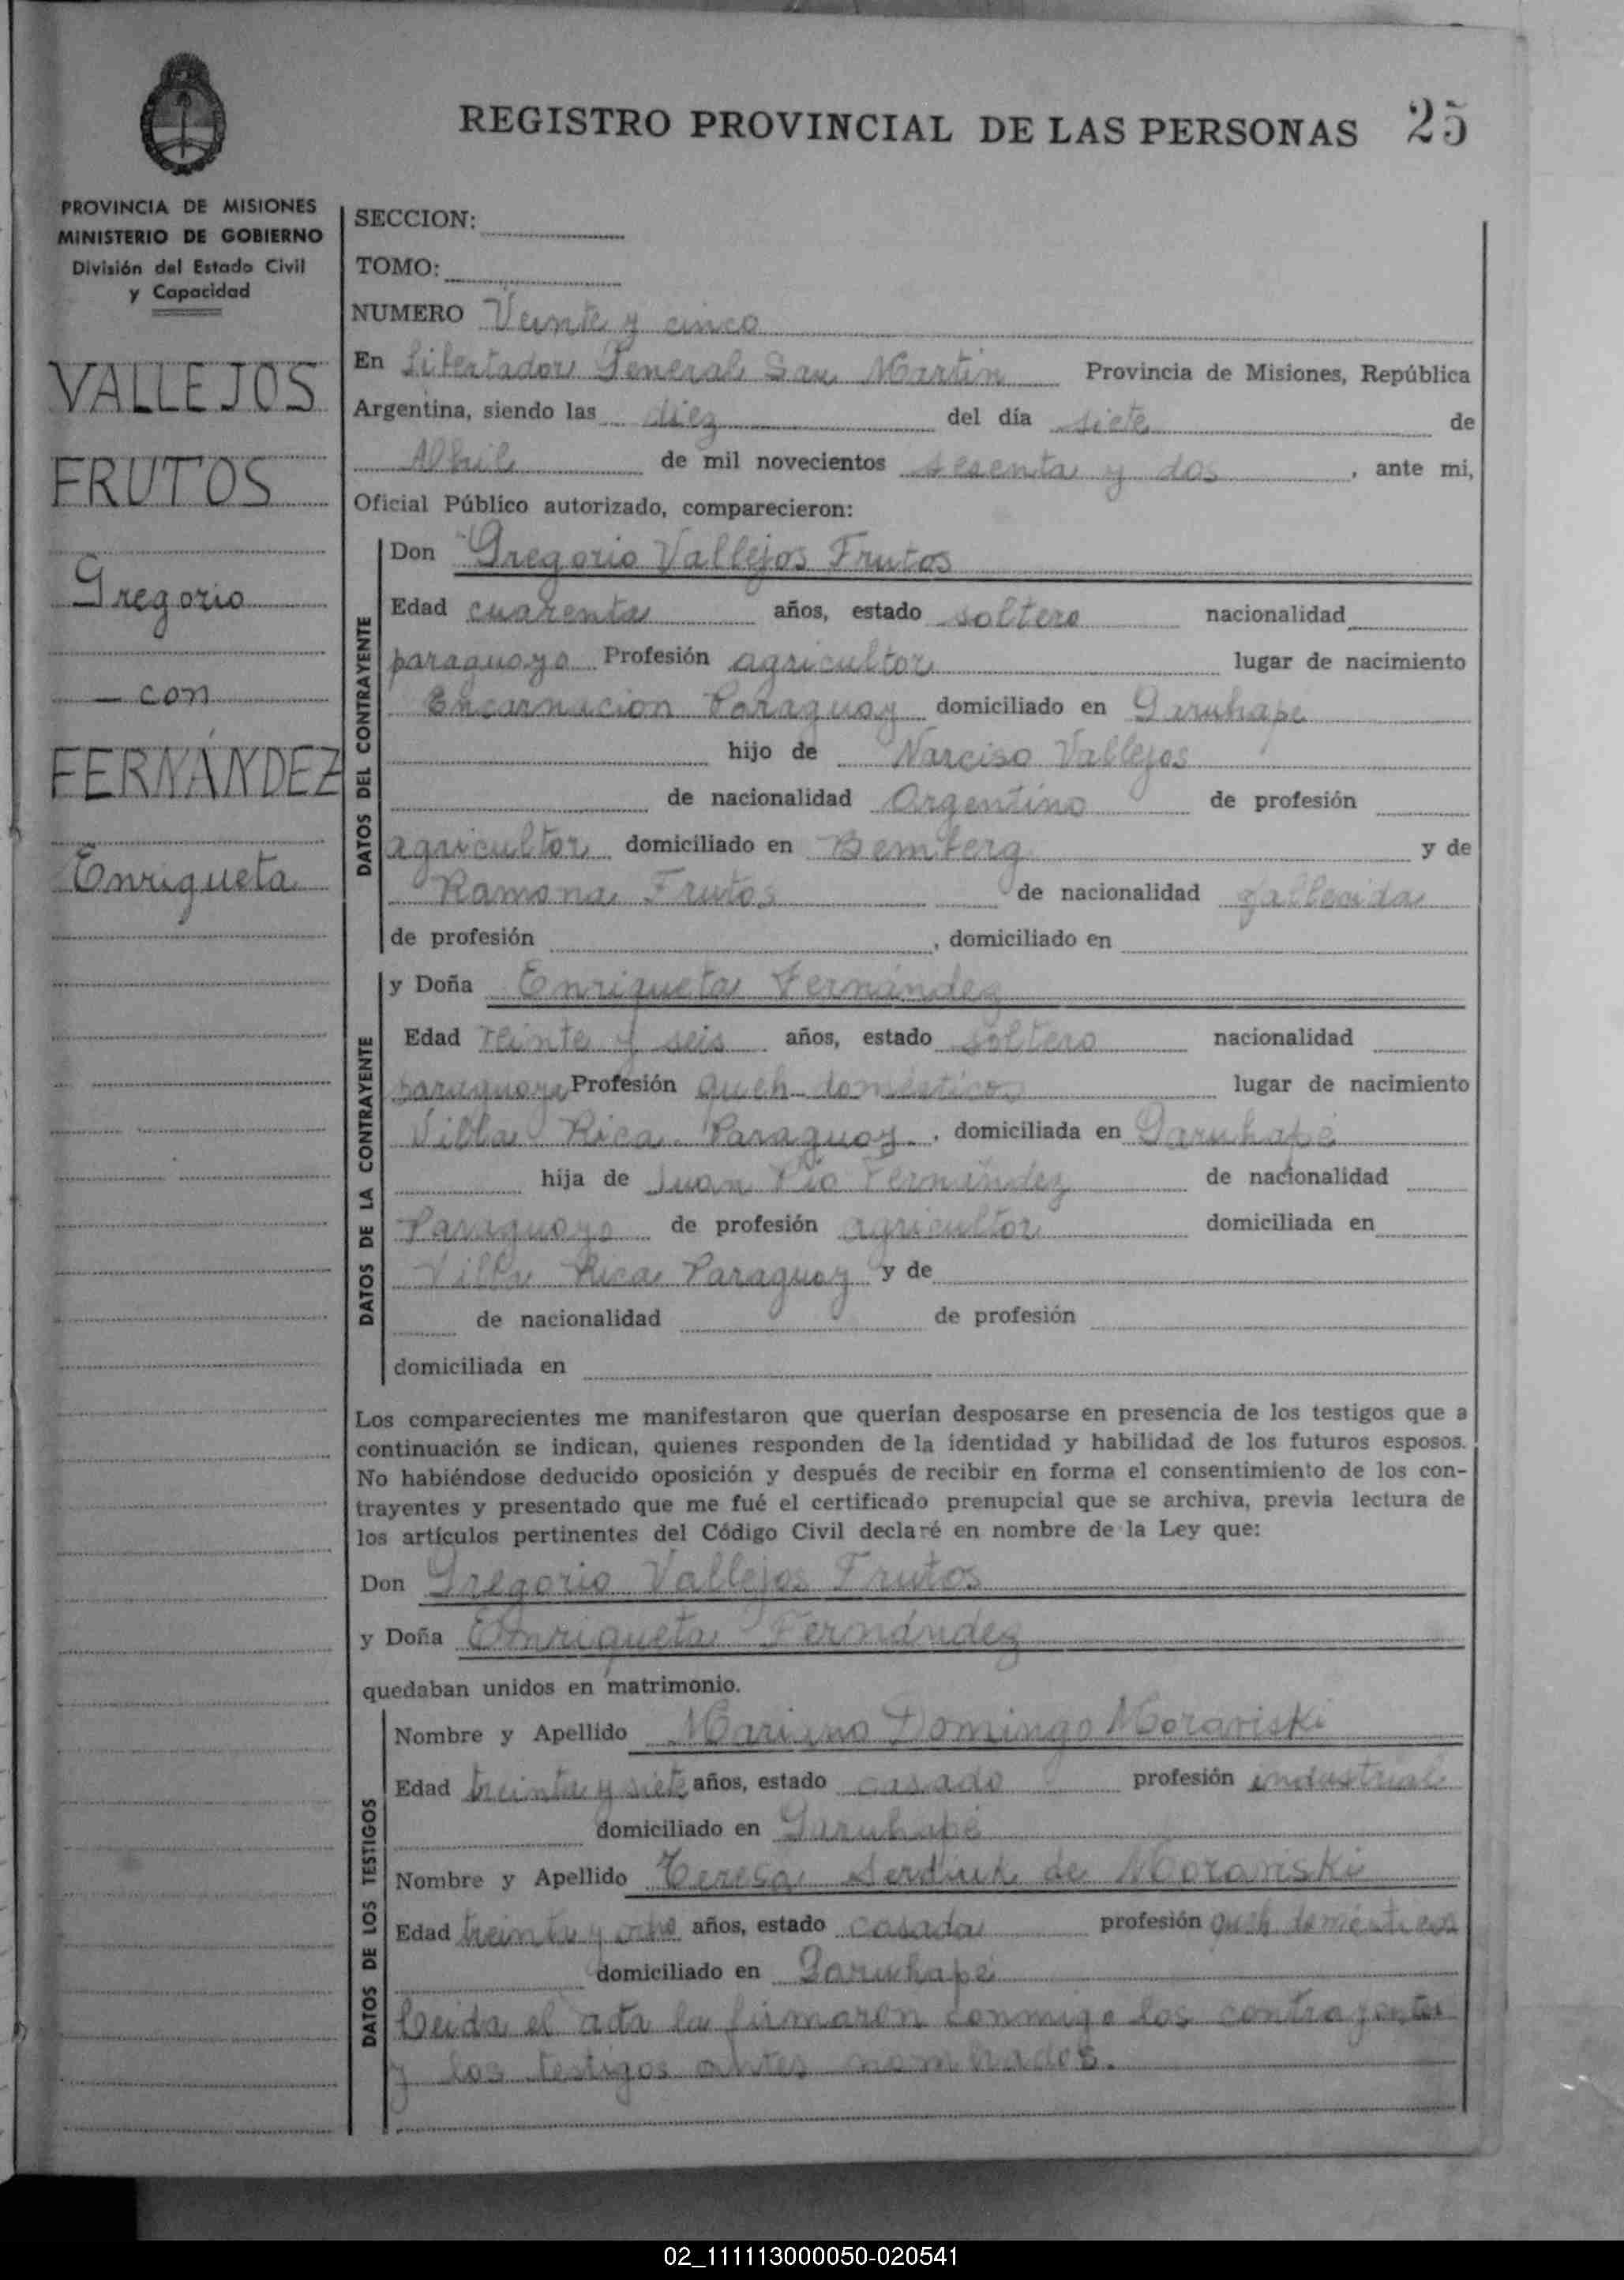 REGISTRO PROVINCIAL DE LAS PERSONAS 25
PROVINCIA DE MISIONES
MINISTERIO DE GOBIERNO
División del Estado Civil
y Capacidad
VALLEJOS
FRUTOS
Gregorio
— con
FERNÁNDEZ
Enriqueta
SECCION:
TOMO:
NUMERO Veinte y cinco
En Libertador General San Martin Provincia de Misiones, República
Argentina, siendo las diez del día siete de
Abril de mil novecientos sesenta y dos, ante mi,
Oficial Público autorizado, comparecieron:
DATOS DEL CONTRAYENTE
Don Gregorio Vallejos Frutos
Edad cuarenta años, estado soltero nacionalidad
paraguayo Profesión agricultor lugar de nacimiento
Encarnacion Paraguay domiciliado en Garuhape
hijo de Narciso Vallejos
de nacionalidad Argentino de profesión
agricultor domiciliado en Bemberg y de
Ramona Frutos de nacionalidad fallecida
de profesión , domiciliado en
DATOS DE LA CONTRAYENTE
y Doña Enriqueta Fernández
Edad veinte y seis años, estado soltera nacionalidad
paraguaya Profesión queh. domésticos lugar de nacimiento
Villa Rica Paraguay, domiciliada en Garuhapé
hija de Juan Pío Fernández de nacionalidad
Paraguayo de profesión agricultor domiciliada en
Villa Rica Paraguay y de
de nacionalidad de profesión
domiciliada en
Los comparecientes me manifestaron que querían desposarse en presencia de los testigos que a
continuación se indican, quienes responden de la identidad y habilidad de los futuros esposos.
No habiéndose deducido oposición y después de recibir en forma el consentimiento de los con-
trayentes y presentado que me fué el certificado prenupcial que se archiva, previa lectura de
los artículos pertinentes del Código Civil declaré en nombre de la Ley que:
Don Gregorio Vallejos Frutos
y Doña Enriqueta Fernández
quedaban unidos en matrimonio.
DATOS DE LOS TESTIGOS
Nombre y Apellido Mariano Domingo Moraviski
Edad treinta y siete años, estado casado profesión industrial
domiciliado en Garuhapé
Nombre y Apellido Teresa Serdiuk de Moraviski
Edad treinta y ocho años, estado casada profesión queh. domésticos
domiciliado en Garuhapé
Leida el acta la firmaron conmigo los contrayentes
y los testigos antes nombrados.
02_111113000050-020541